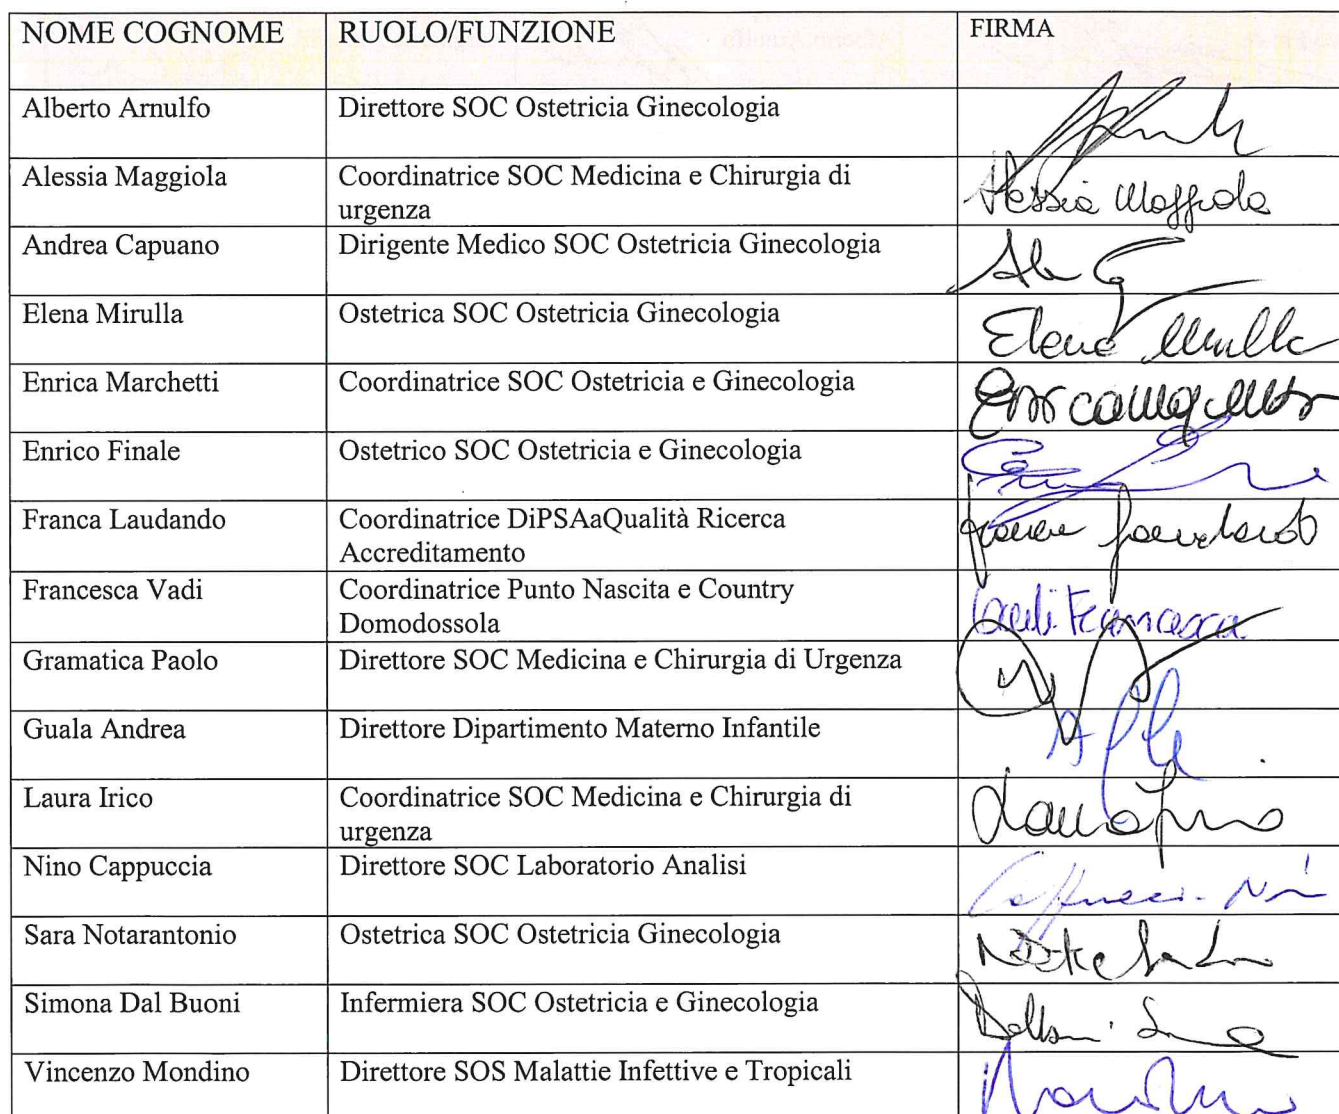 NOME COGNOME RUOLO/FUNZIONE FIRMA
Alberto Arnulfo Direttore SOC Ostetricia Ginecologia
Alessia Maggiola Coordinatrice SOC Medicina e Chirurgia di
urgenza Alessia Maggiola
Andrea Capuano Dirigente Medico SOC Ostetricia Ginecologia
Elena Mirulla Ostetrica SOC Ostetricia Ginecologia Elena Mirulla
Enrica Marchetti Coordinatrice SOC Ostetricia e Ginecologia
Enrico Finale Ostetrico SOC Ostetricia e Ginecologia
Franca Laudando Coordinatrice DiPSAaQualità Ricerca
Accreditamento Franca Laudando
Francesca Vadi Coordinatrice Punto Nascita e Country
Domodossola Vadi Francesca
Gramatica Paolo Direttore SOC Medicina e Chirurgia di Urgenza
Guala Andrea Direttore Dipartimento Materno Infantile
Laura Irico Coordinatrice SOC Medicina e Chirurgia di
urgenza Laura Irico
Nino Cappuccia Direttore SOC Laboratorio Analisi
Sara Notarantonio Ostetrica SOC Ostetricia Ginecologia
Simona Dal Buoni Infermiera SOC Ostetricia e Ginecologia
Vincenzo Mondino Direttore SOS Malattie Infettive e Tropicali